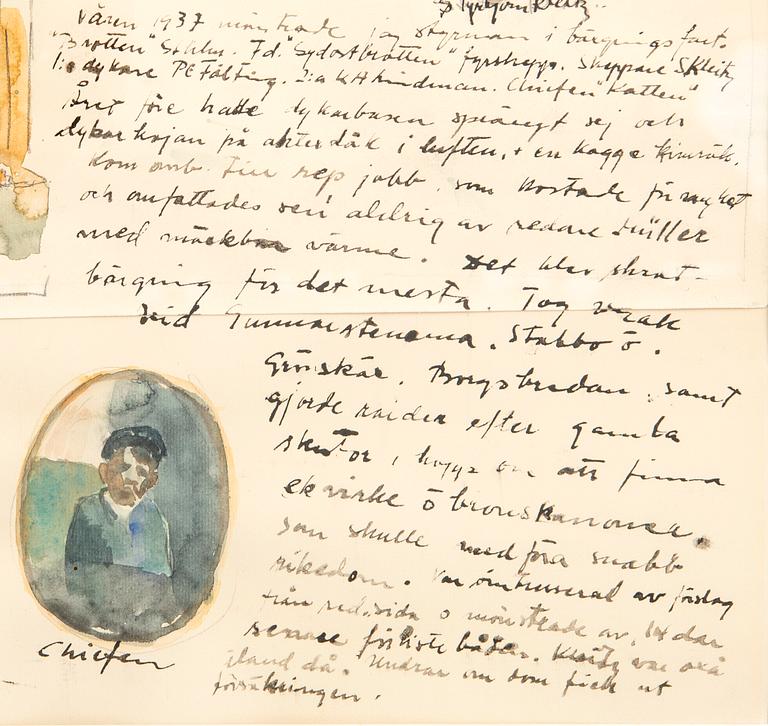 Våren 1937 mönstrade jag styrman i bärgningsfart.
"Brotten" Sthlm. Fd. "Sydostbrotten" fyrskepp. Skeppare S Kleitz
1:e dykare P E Fälting. 2:a K H Lindman. Chiefen "Katten"
Året före hade dykarbasen sprängt sej och
dykar kojan på akterdäk i luften, + en kagge
Kom omb. rep jobb. som kostade för mycket
och omfattades sen aldrig av redare Müller
med värme. Det blev skrot-
bärgning för det mesta. Tog vrak
vid Gunnarstenarna. Stabbo ö.
Grönskär. Borgsbredan. samt
gjorde raider efter gamla
skutor, i hopp om att finna
ekvirke o bronskanoner.
som skulle medföra snabb
rikedom. Var av förslag
från red.sida o mönstrade av. 14 dar
senare förliste båten. Kleitz var oxå
iland då. Undrar om dom fick ut
försäkringen.
Chiefen